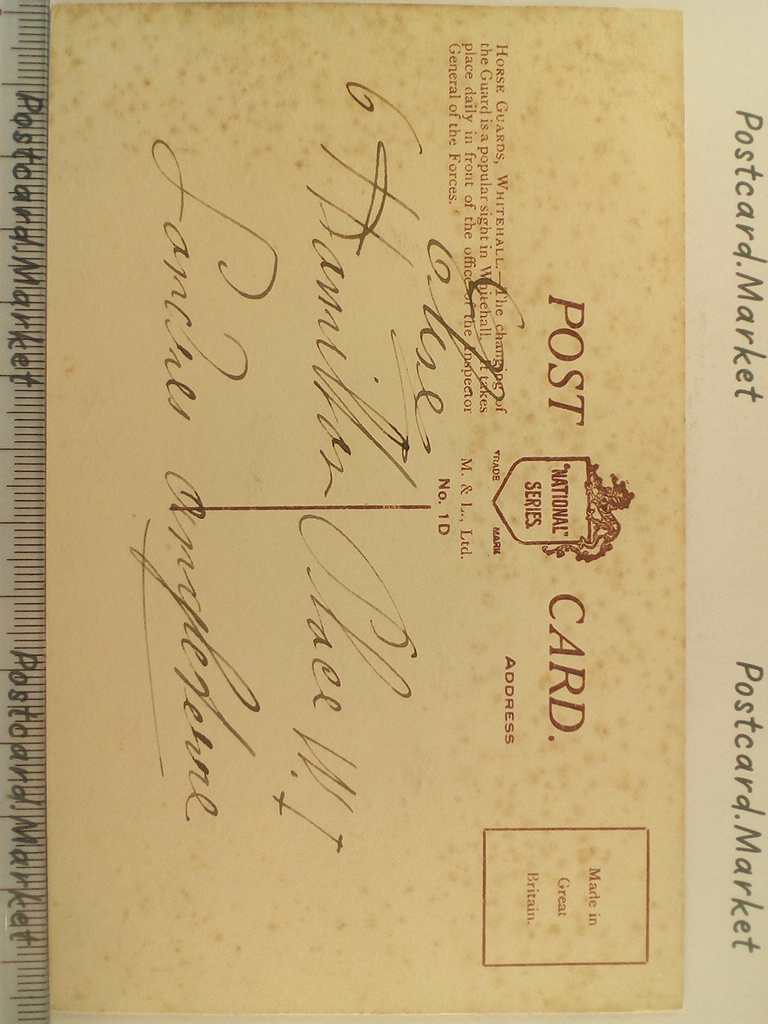 Postcard.Market Postcard.Market
POST CARD.
"NATIONAL"
SERIES.
TRADE MARK
HORSE GUARDS, WHITEHALL.—The changing of
the Guard is a popular sight in Whitehall. It takes
place daily in front of the office of the Inspector
General of the Forces.
M. & L., Ltd.
No. 1D
ADDRESS
Made in
Great
Britain.
6 Hamilton Place W.1
Londres Angleterre
Postcard.Market Postcard.Market